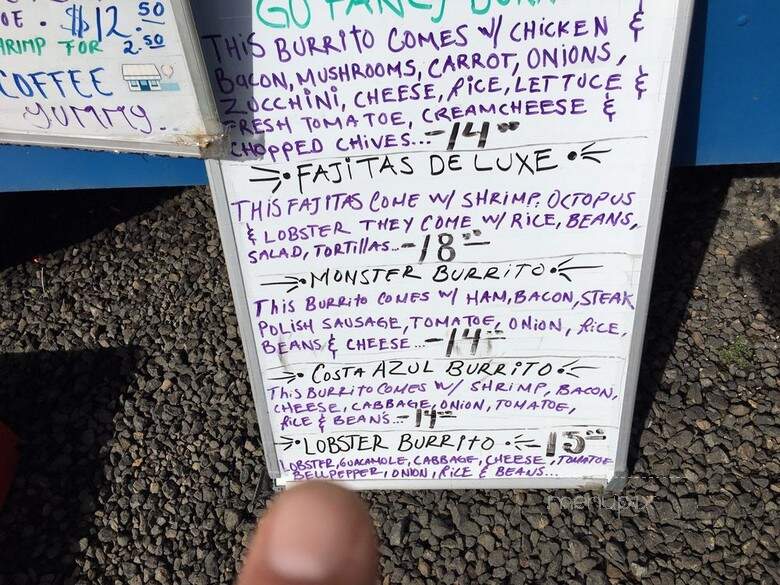 OE. $12.50
HRIMP FOR 2.50
COFFEE
YUMMY...
GO FANCY BURR
THIS BURRITO COMES W/ CHICKEN &
BACON, MUSHROOMS, CARROT, ONIONS,
ZUCCHINI, CHEESE, RICE, LETTUCE &
FRESH TOMATOE, CREAMCHEESE &
CHOPPED CHIVES...-14.00
FAJITAS DE LUXE
THIS FAJITAS COME W/ SHRIMP, OCTOPUS
& LOBSTER THEY COME W/ RICE, BEANS,
SALAD, TORTILLAS..-18.00
MONSTER BURRITO
THIS BURRITO COMES W/ HAM, BACON, STEAK
POLISH SAUSAGE, TOMATOE, ONION, RICE,
BEANS & CHEESE...-14.00
COSTA AZUL BURRITO
THIS BURRITO COMES W/ SHRIMP, BACON,
CHEESE, CABBAGE, ONION, TOMATOE,
RICE & BEANS..-14.00
LOBSTER BURRITO -15.00
LOBSTER, GUACAMOLE, CABBAGE, CHEESE, TOMATOE
BELLPEPPER, ONION, RICE & BEANS...
menupix